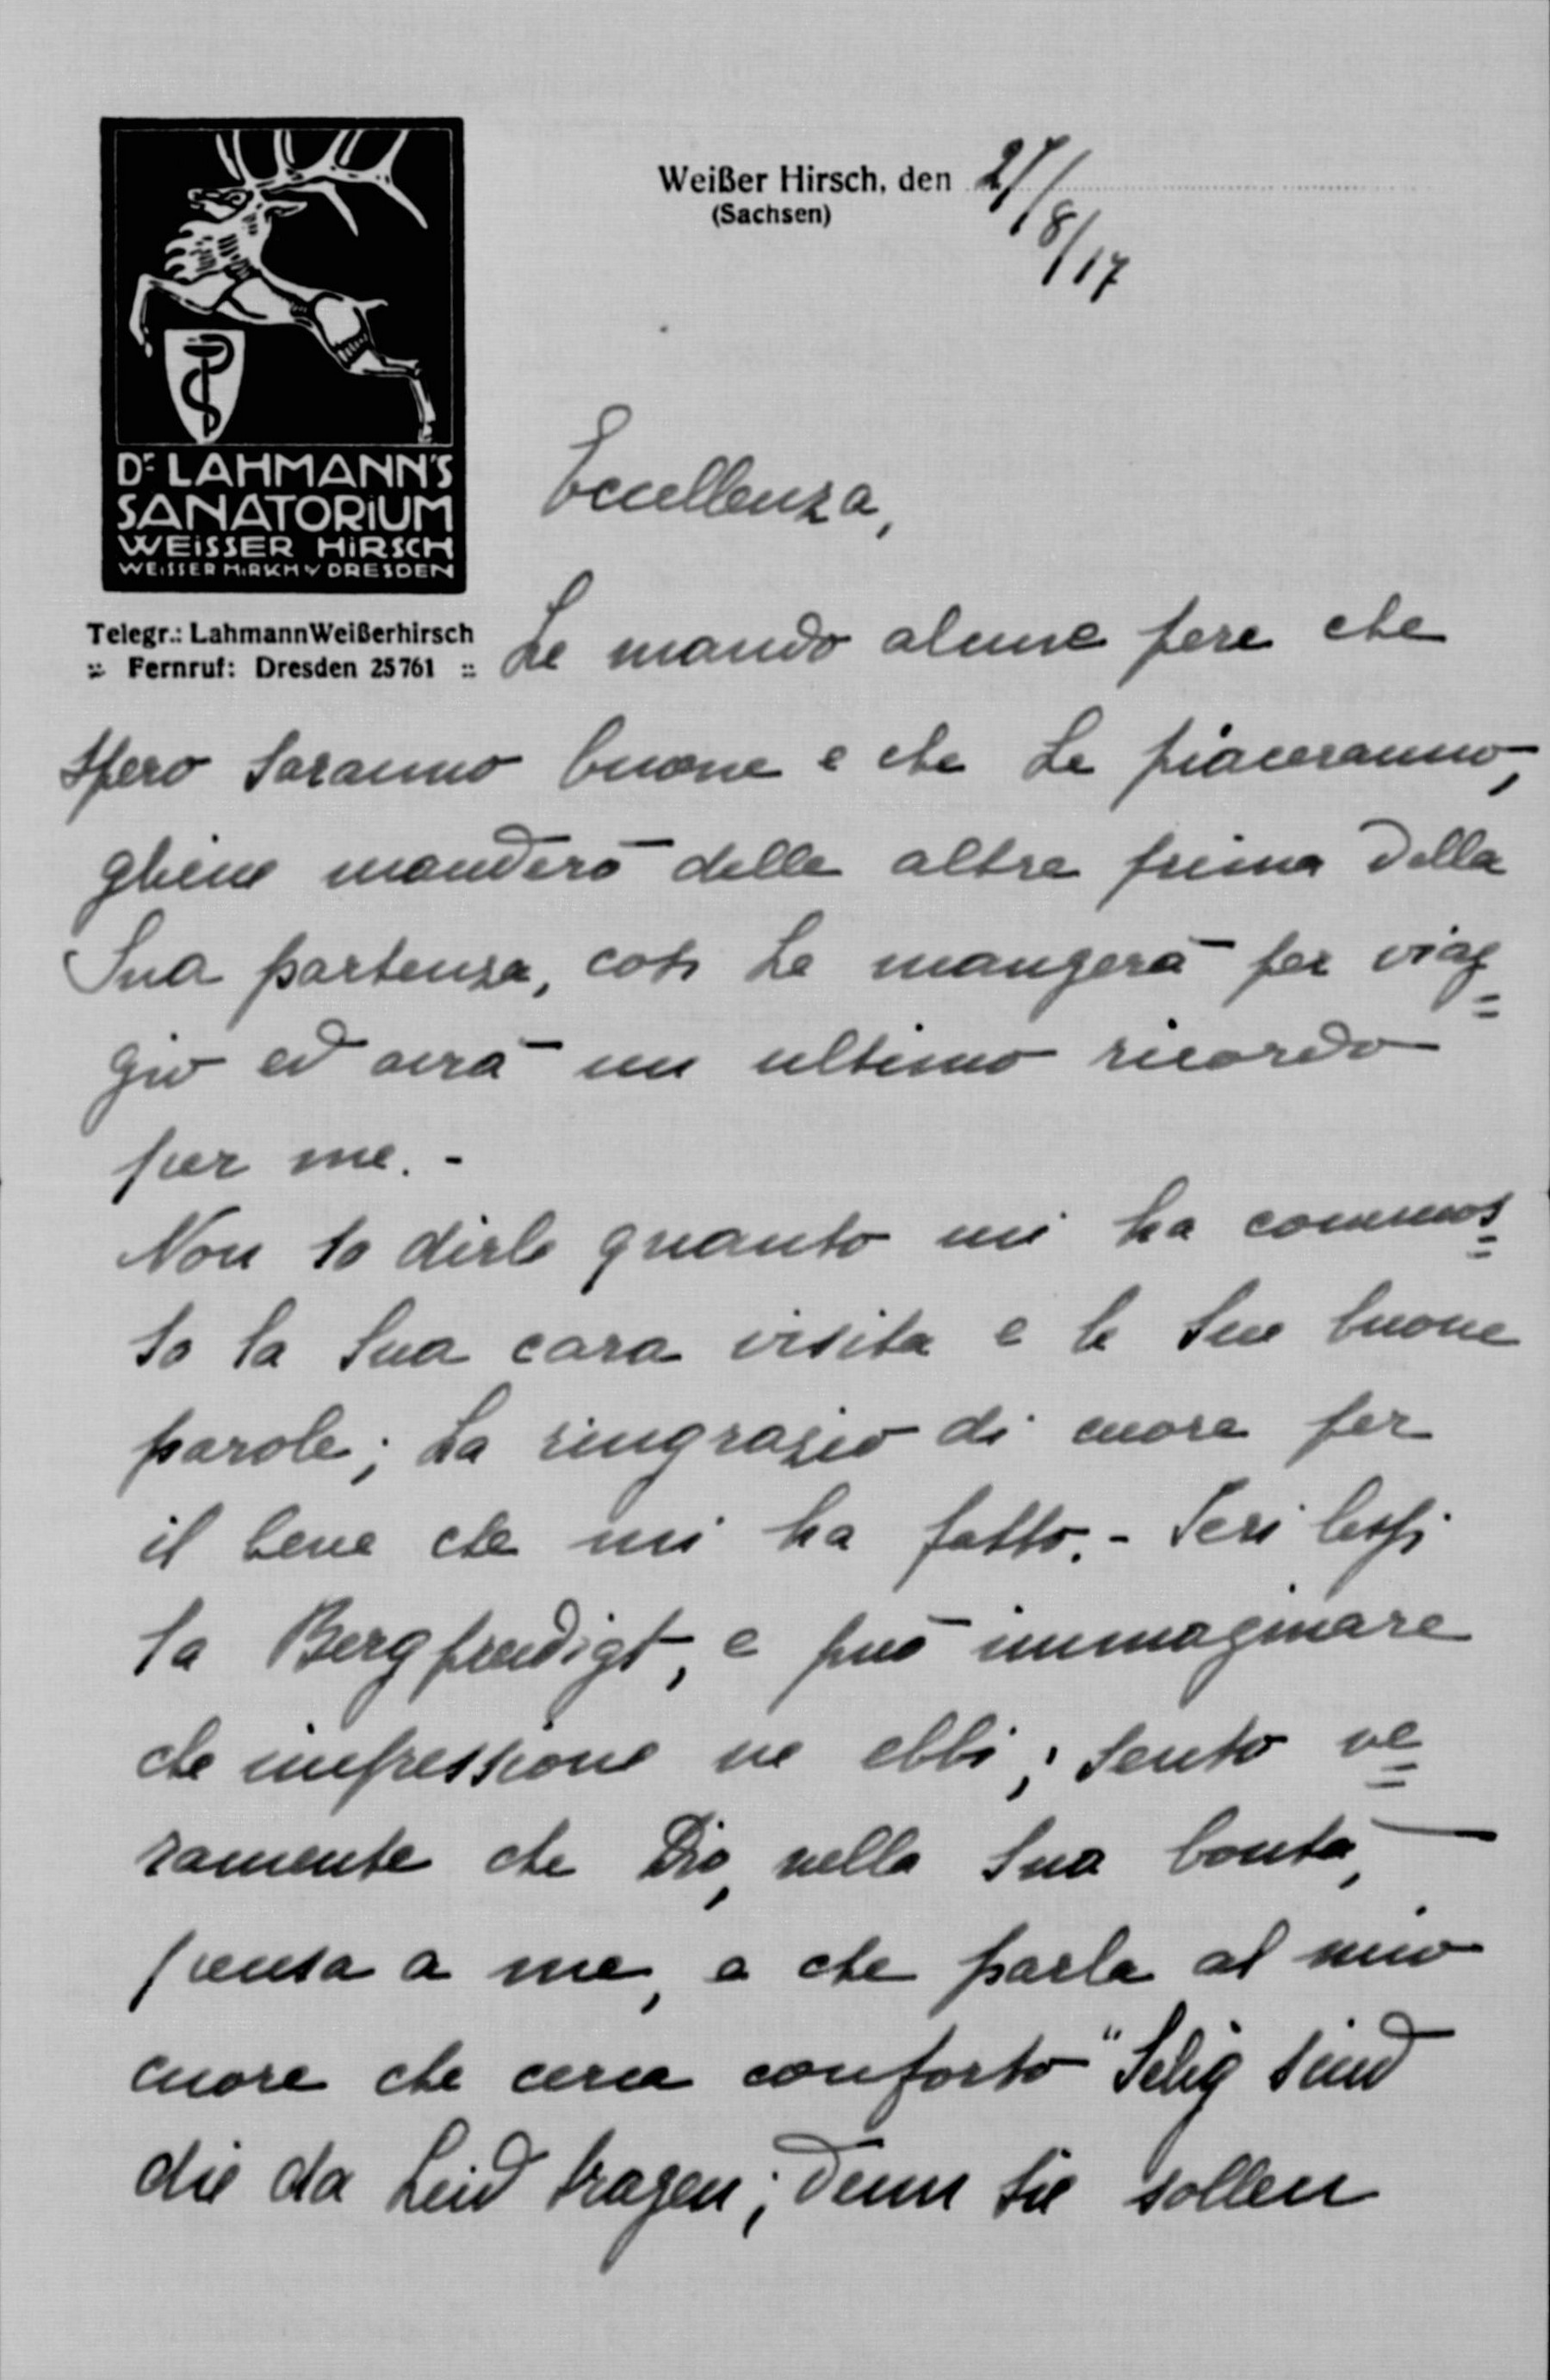 Dr LAHMANN'S
SANATORIUM
WEISSER HIRSCH
WEISSER HIRSCH b/ DRESDEN
Telegr.: Lahmann Weißerhirsch
:: Fernruf: Dresden 25761 ::
Weißer Hirsch, den 27/8/17
(Sachsen)
Eccellenza,
Le mando alcune pere che
spero saranno buone e che Le piaceranno,
gliene manderò delle altre prima della
Sua partenza, così Le mangerà per viag=
gio ed avrà un ultimo ricordo
per me. -
Non so dirle quanto mi ha commos=
so la Sua cara visita e le Sue buone
parole; La ringrazio di cuore per
il bene che mi ha fatto. - Ieri lessi
la Bergpredigt, e può immaginare
che impressione ne ebbi; sento ve=
ramente che Dio, nella Sua bontà,
pensa a me, e che parla al mio
cuore che cerca conforto "Selig sind
die da Leid tragen; denn sie sollen